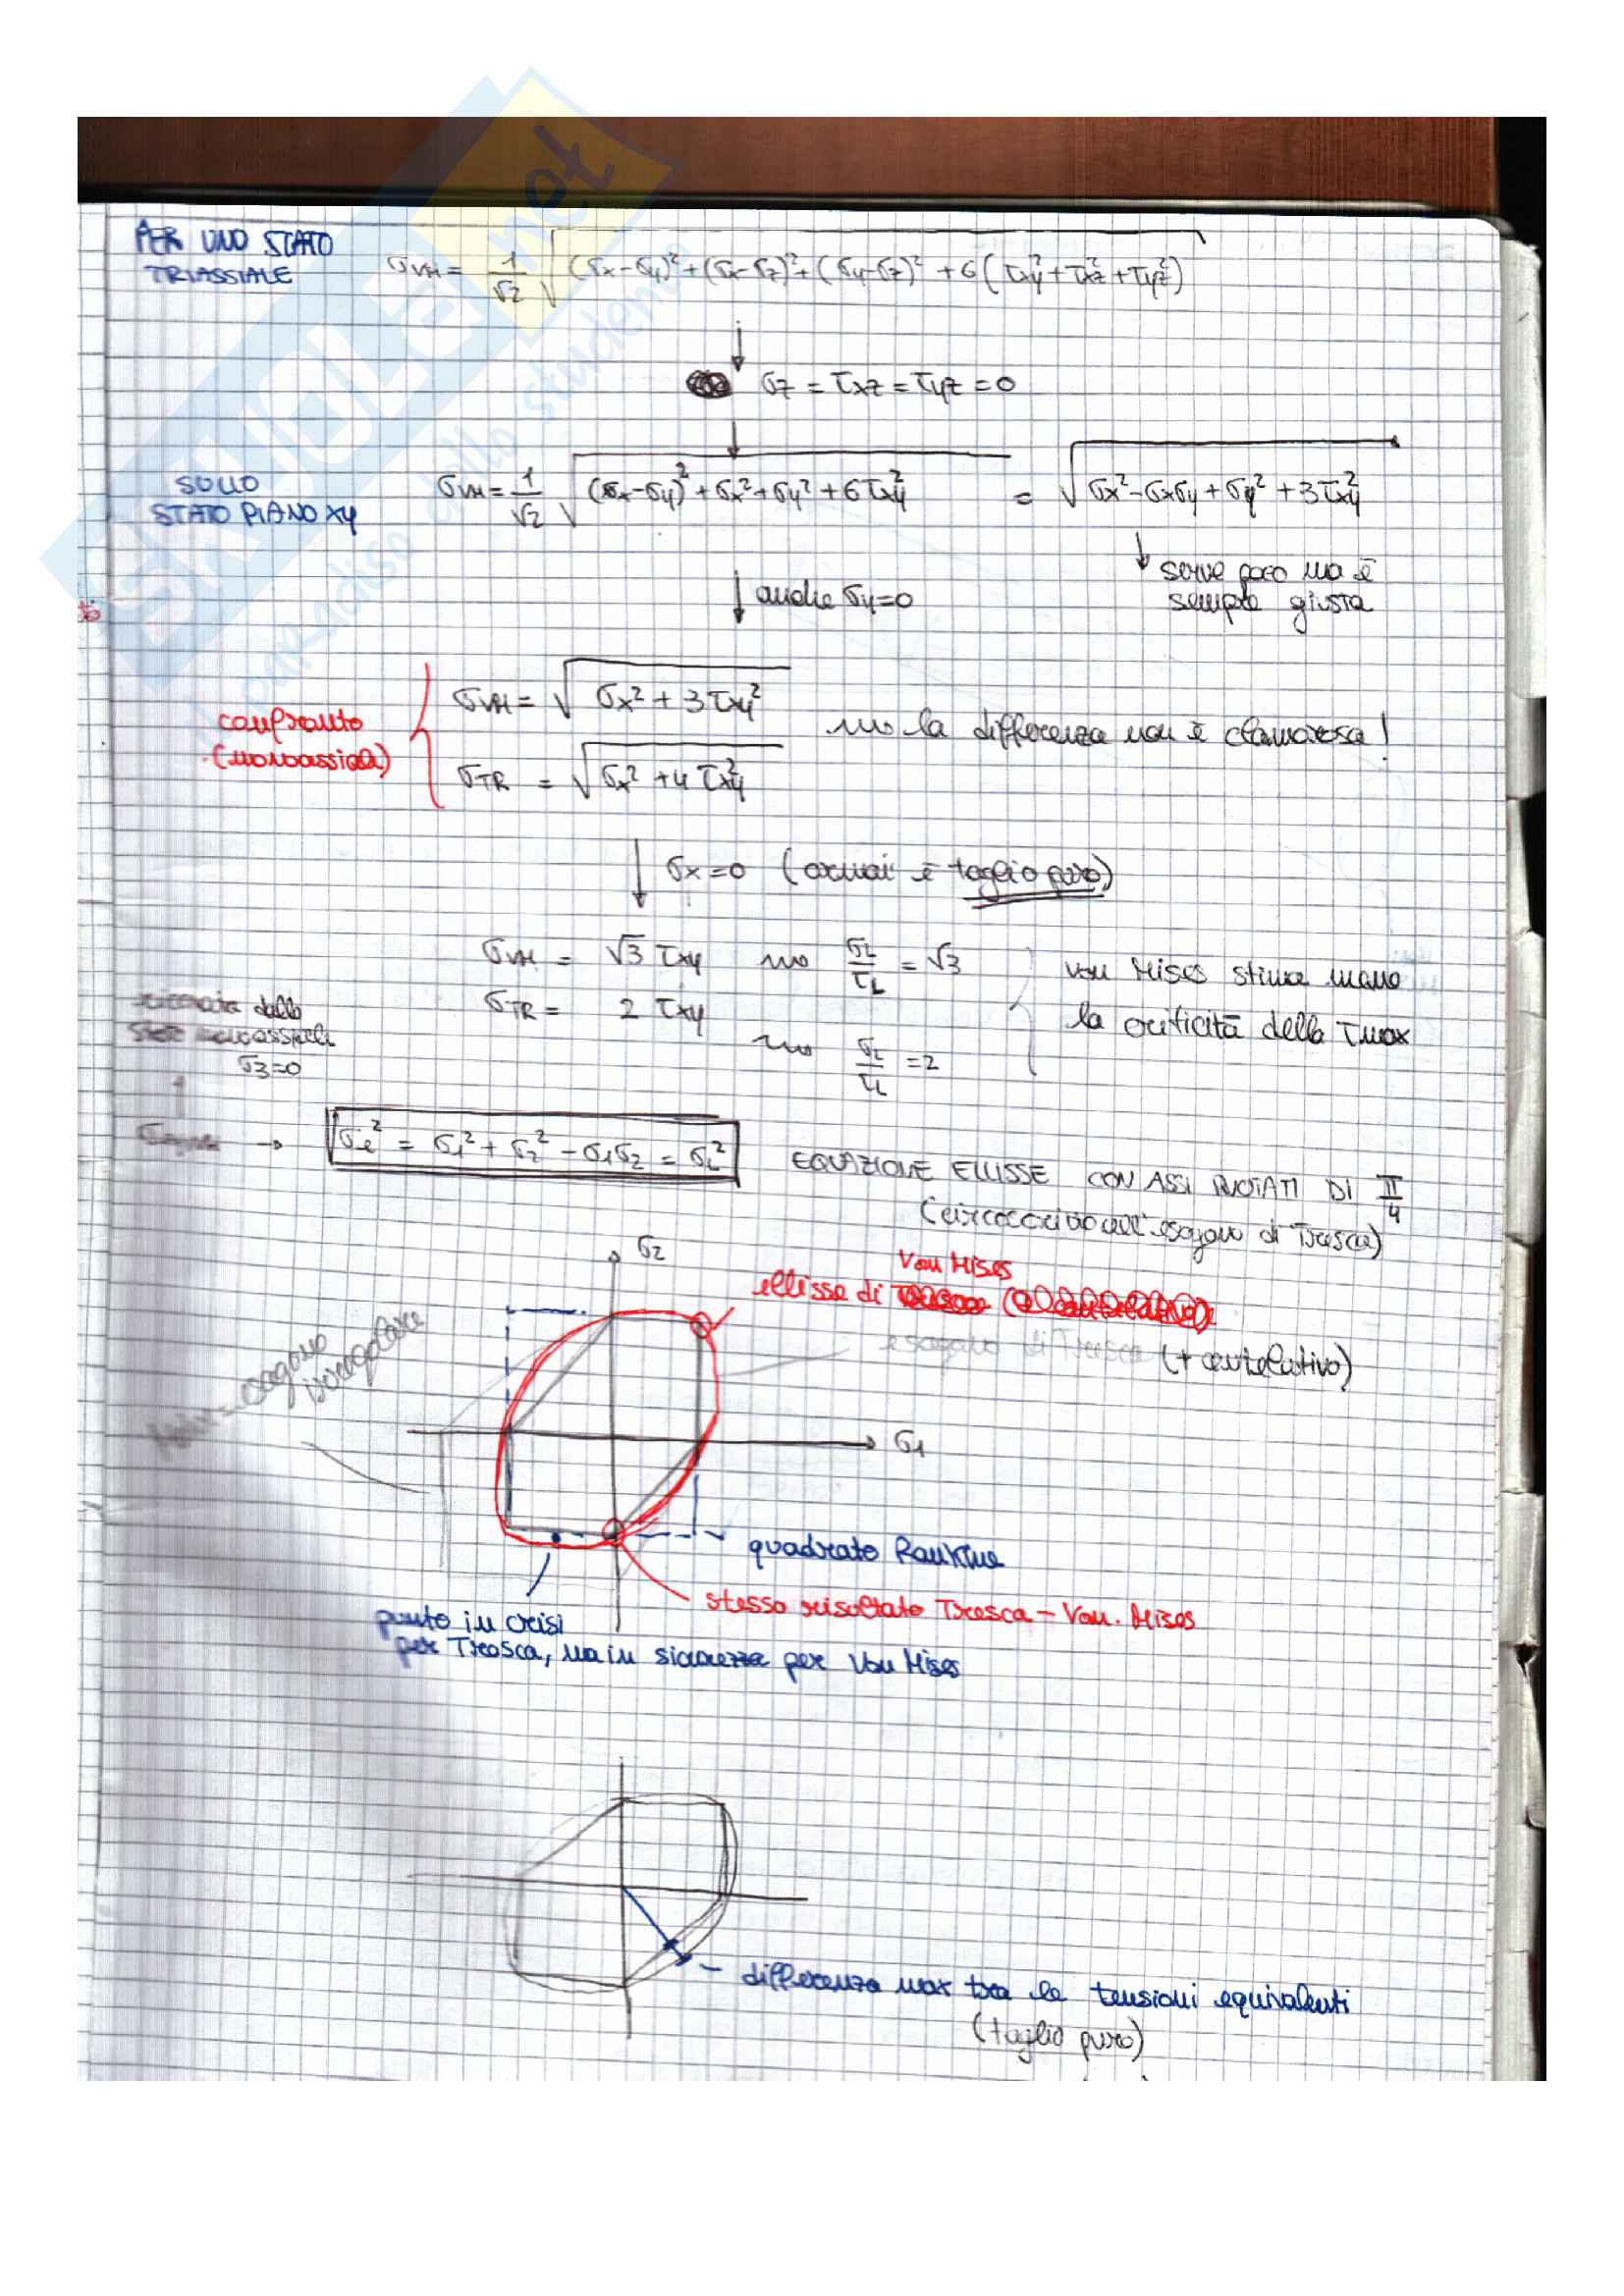 PER UNO STATO
TRIASSIALE
σVM = 1/√2 √((σx-σy)²+(σx-σz)²+(σy-σz)² + 6(τxy²+τxz²+τyz²))
σz = τxz = τyz = 0
SOLO
STATO PIANO xy
σVM = 1/√2 √((σx-σy)²+σx²+σy²+6τxy²) = √(σx²-σxσy+σy²+3τxy²)
serve poco ma è
sempre giusta
anche σy=0
confronto
(monoassiale)
σVM = √(σx²+3τxy²)
la differenza non è clamorosa!
σTR = √(σx²+4τxy²)
σx=0 (ormai è taglio puro)
σVM = √3 τxy σL/τL = √3
σTR = 2 τxy σL/τL = 2
von Mises stima meno
la criticità della τmax
dallo
σ3=0
→ σie² = σ1²+σ2²-σ1σ2 = σL²
EQUAZIONE ELLISSE CON ASSI RUOTATI DI π/4
(circoscrivo all'esagono di Tresca)
σ2
Von Mises
ellisse di
esagono di Tresca (+ cautelativo)
esagono
irregolare
σ1
quadrato Rankine
stesso risultato Tresca – Von. Mises
punto in crisi
per Tresca, ma in sicurezza per Von Mises
differenza max tra le tensioni equivalenti
(taglio puro)
SKUOLA.net
paradiso dello studente